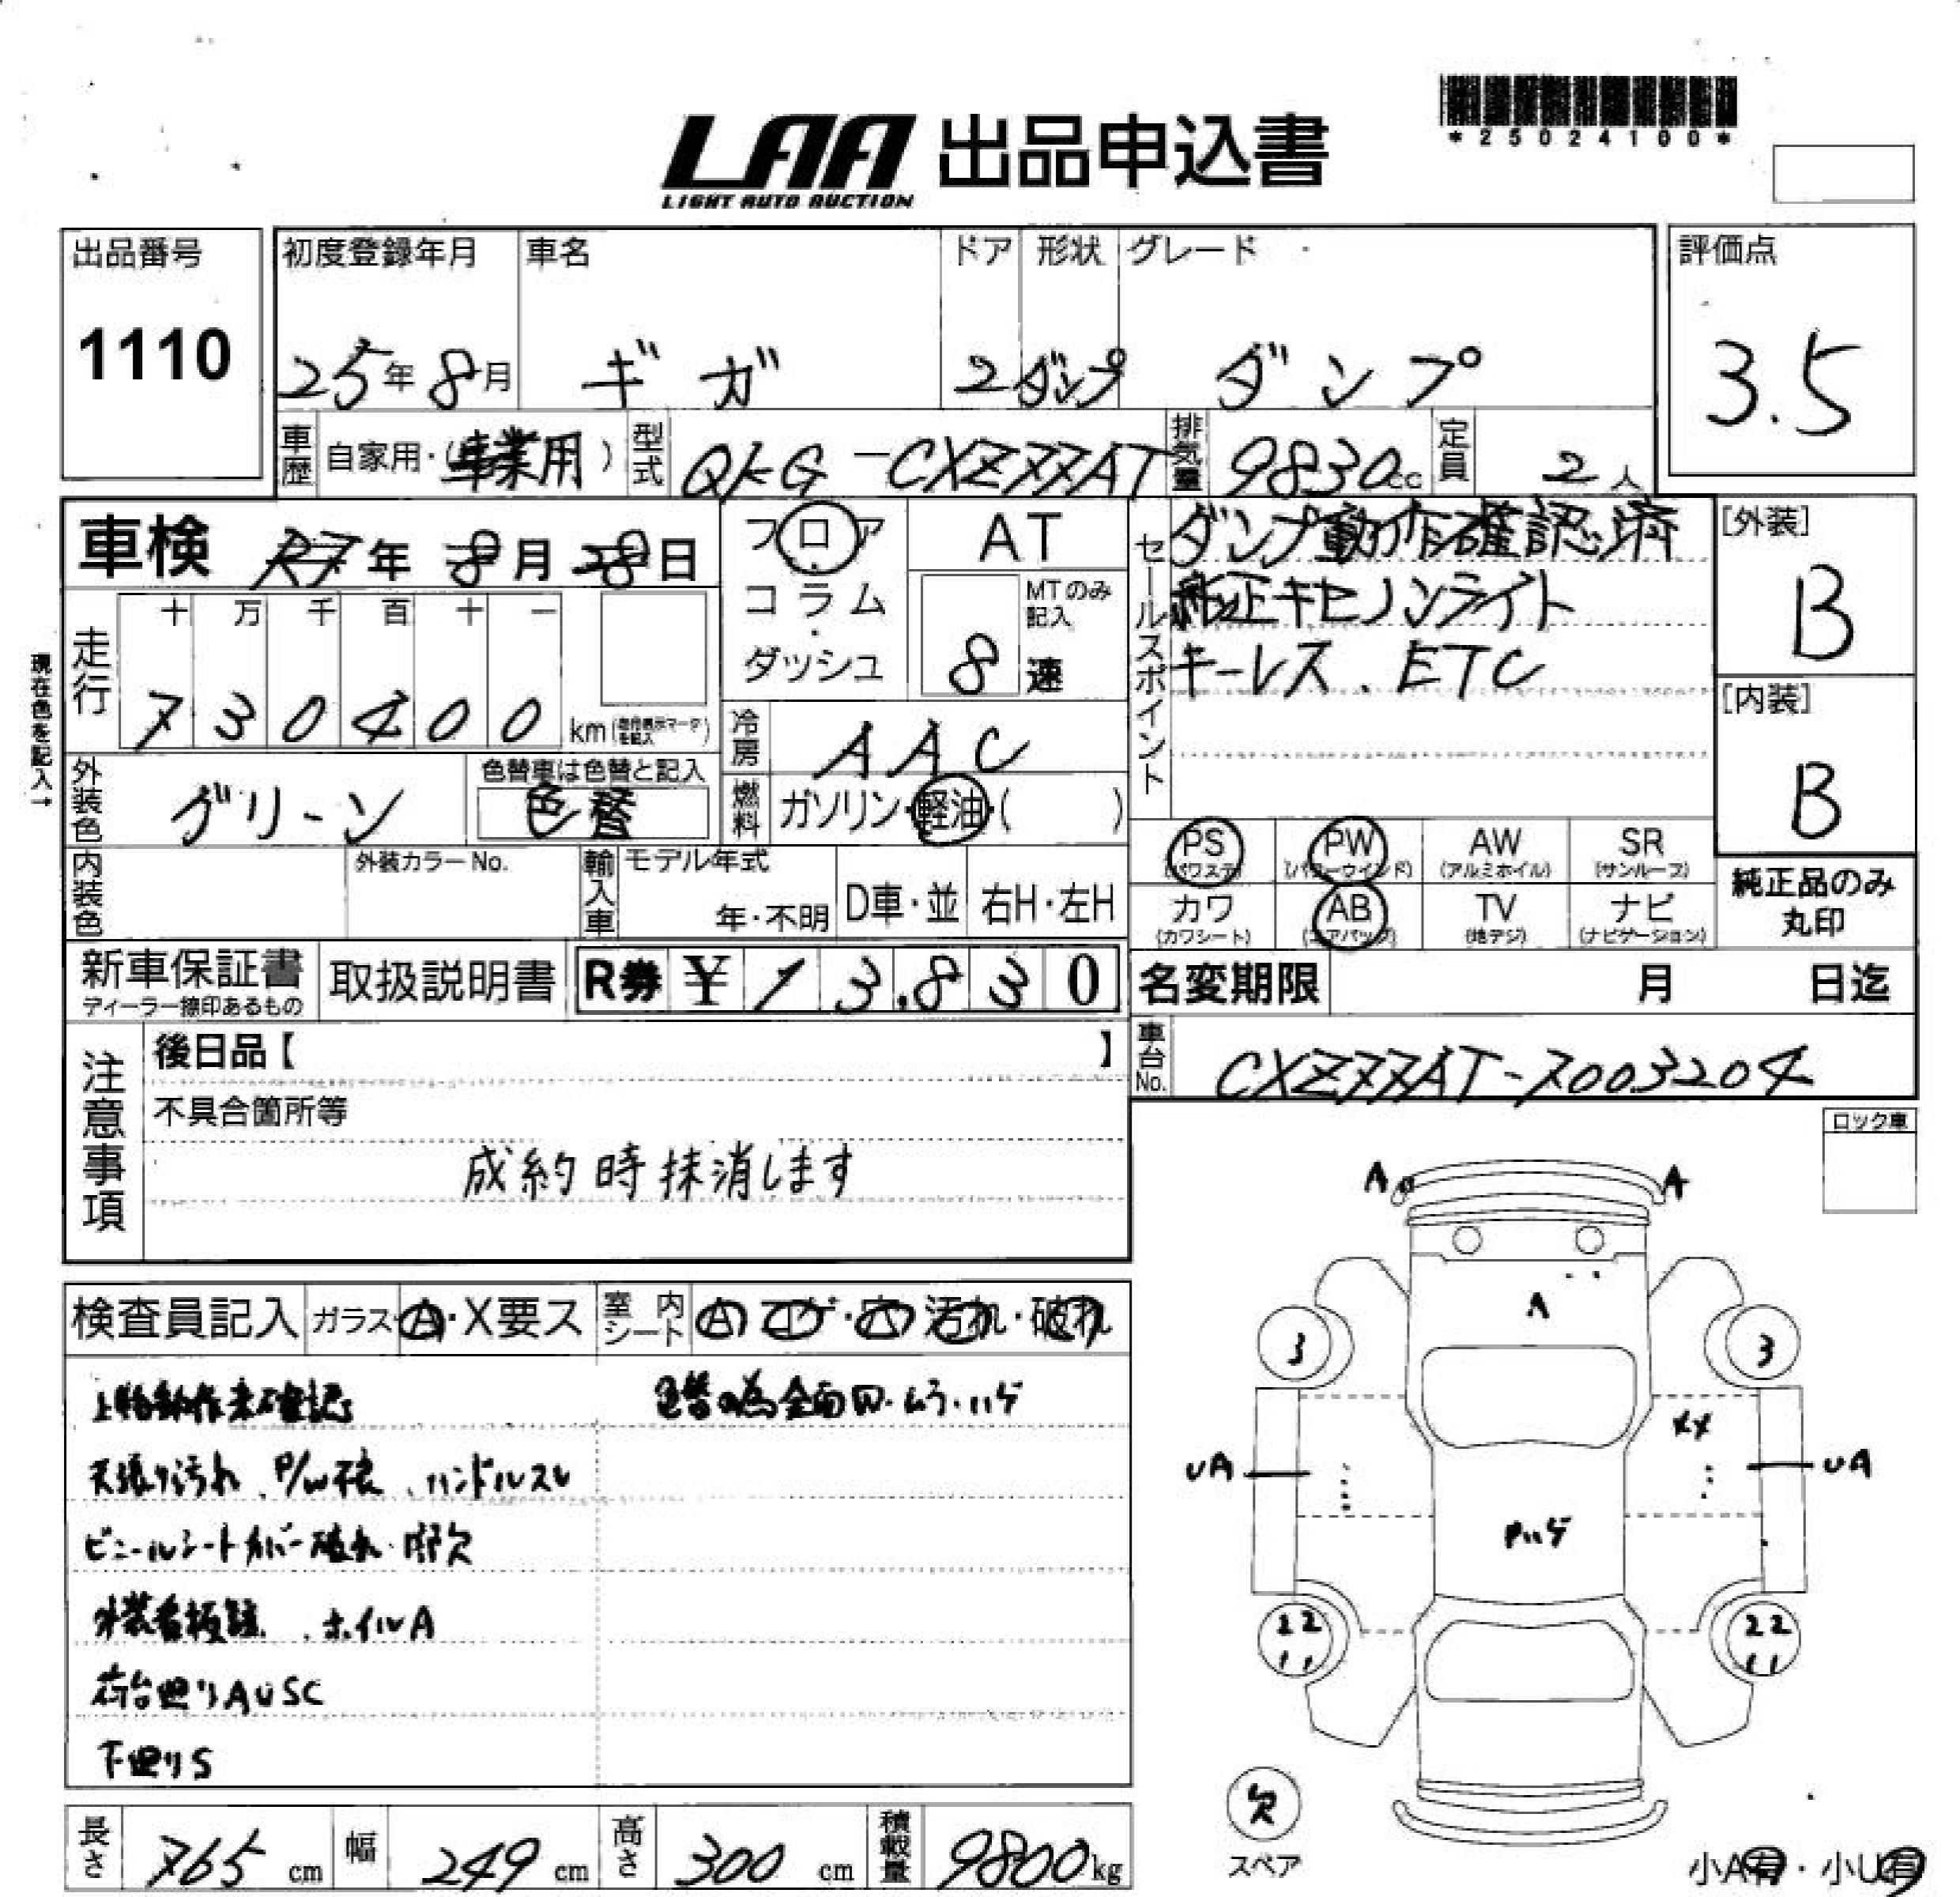 LAA 出品申込書
LIGHT AUTO AUCTION
*25024100*
出品番号
1110
初度登録年月
25年8月
車名
ギガ
ドア
2
形状
ダンプ
グレード
ダンプ
評価点
3.5
車歴 自家用・(事業用)
型式 QKG-CXZ77AT
排気量 9830cc
定員 2人
車検 R7年8月28日
フロア・コラム・ダッシュ
AT
MTのみ記入
8速
セールスポイント
ダンプ動作確認済
純正キセノンライト
キーレス、ETC
[外装]
B
[内装]
B
現在色を記入→
走行 十万千百十一
730400 km
冷房 AAC
外装色 グリーン
色替車は色替と記入
色替
燃料 ガソリン・軽油・( )
PS (パワステ)
PW (パワーウインド)
AW (アルミホイル)
SR (サンルーフ)
カワ (カワシート)
AB (エアバッグ)
TV (地デジ)
ナビ (ナビゲーション)
純正品のみ丸印
内装色
外装カラーNo.
輸入車
モデル年式
年・不明
D車・並
右H・左H
新車保証書
ディーラー捺印あるもの
取扱説明書
R券 ¥13,830
名変期限 月 日迄
車台No. CXZ77AT-7003204
注意事項
後日品【 】
不具合箇所等
成約時抹消します
ロック車
検査員記入
ガラス・A・X要ス
室内シート A コゲ・穴 汚れ・破れ
上物動作未確認
色替の為全面W・ムラ・ハゲ
天張り汚れ、P/W不良、ハンドルスレ
ビニールシートカバー破れ・内部欠
外装看板跡、ホイルA
荷台廻りAUSC
下廻りS
A A
A
3 3
XX
UA UA
Pハゲ
22 22
11 11
欠
スペア
小A有・小U有
長さ 765cm
幅 249cm
高さ 300cm
積載量 9800kg